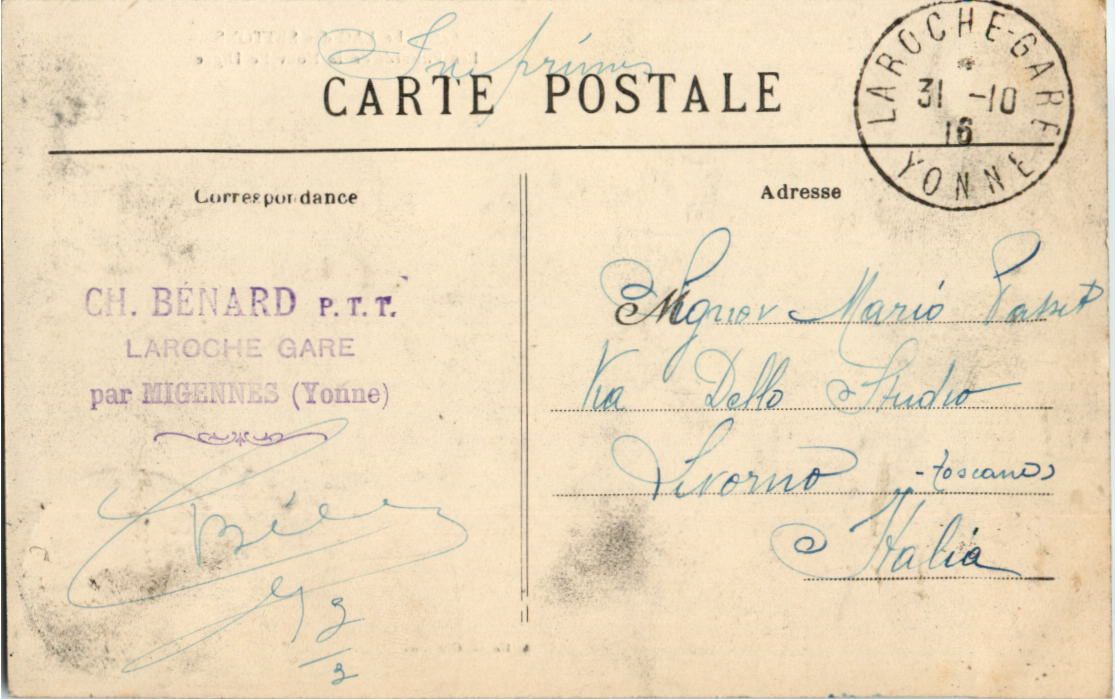 Imprimés
CARTE POSTALE
LAROCHE-GARE
31 -10
16
YONNE
Correspondance
Adresse
CH. BÉNARD P.T.T.
LAROCHE GARE
par MIGENNES (Yonne)
Signor Mario
Via Dello Studio
Livorno -Toscane
Italia
3
3